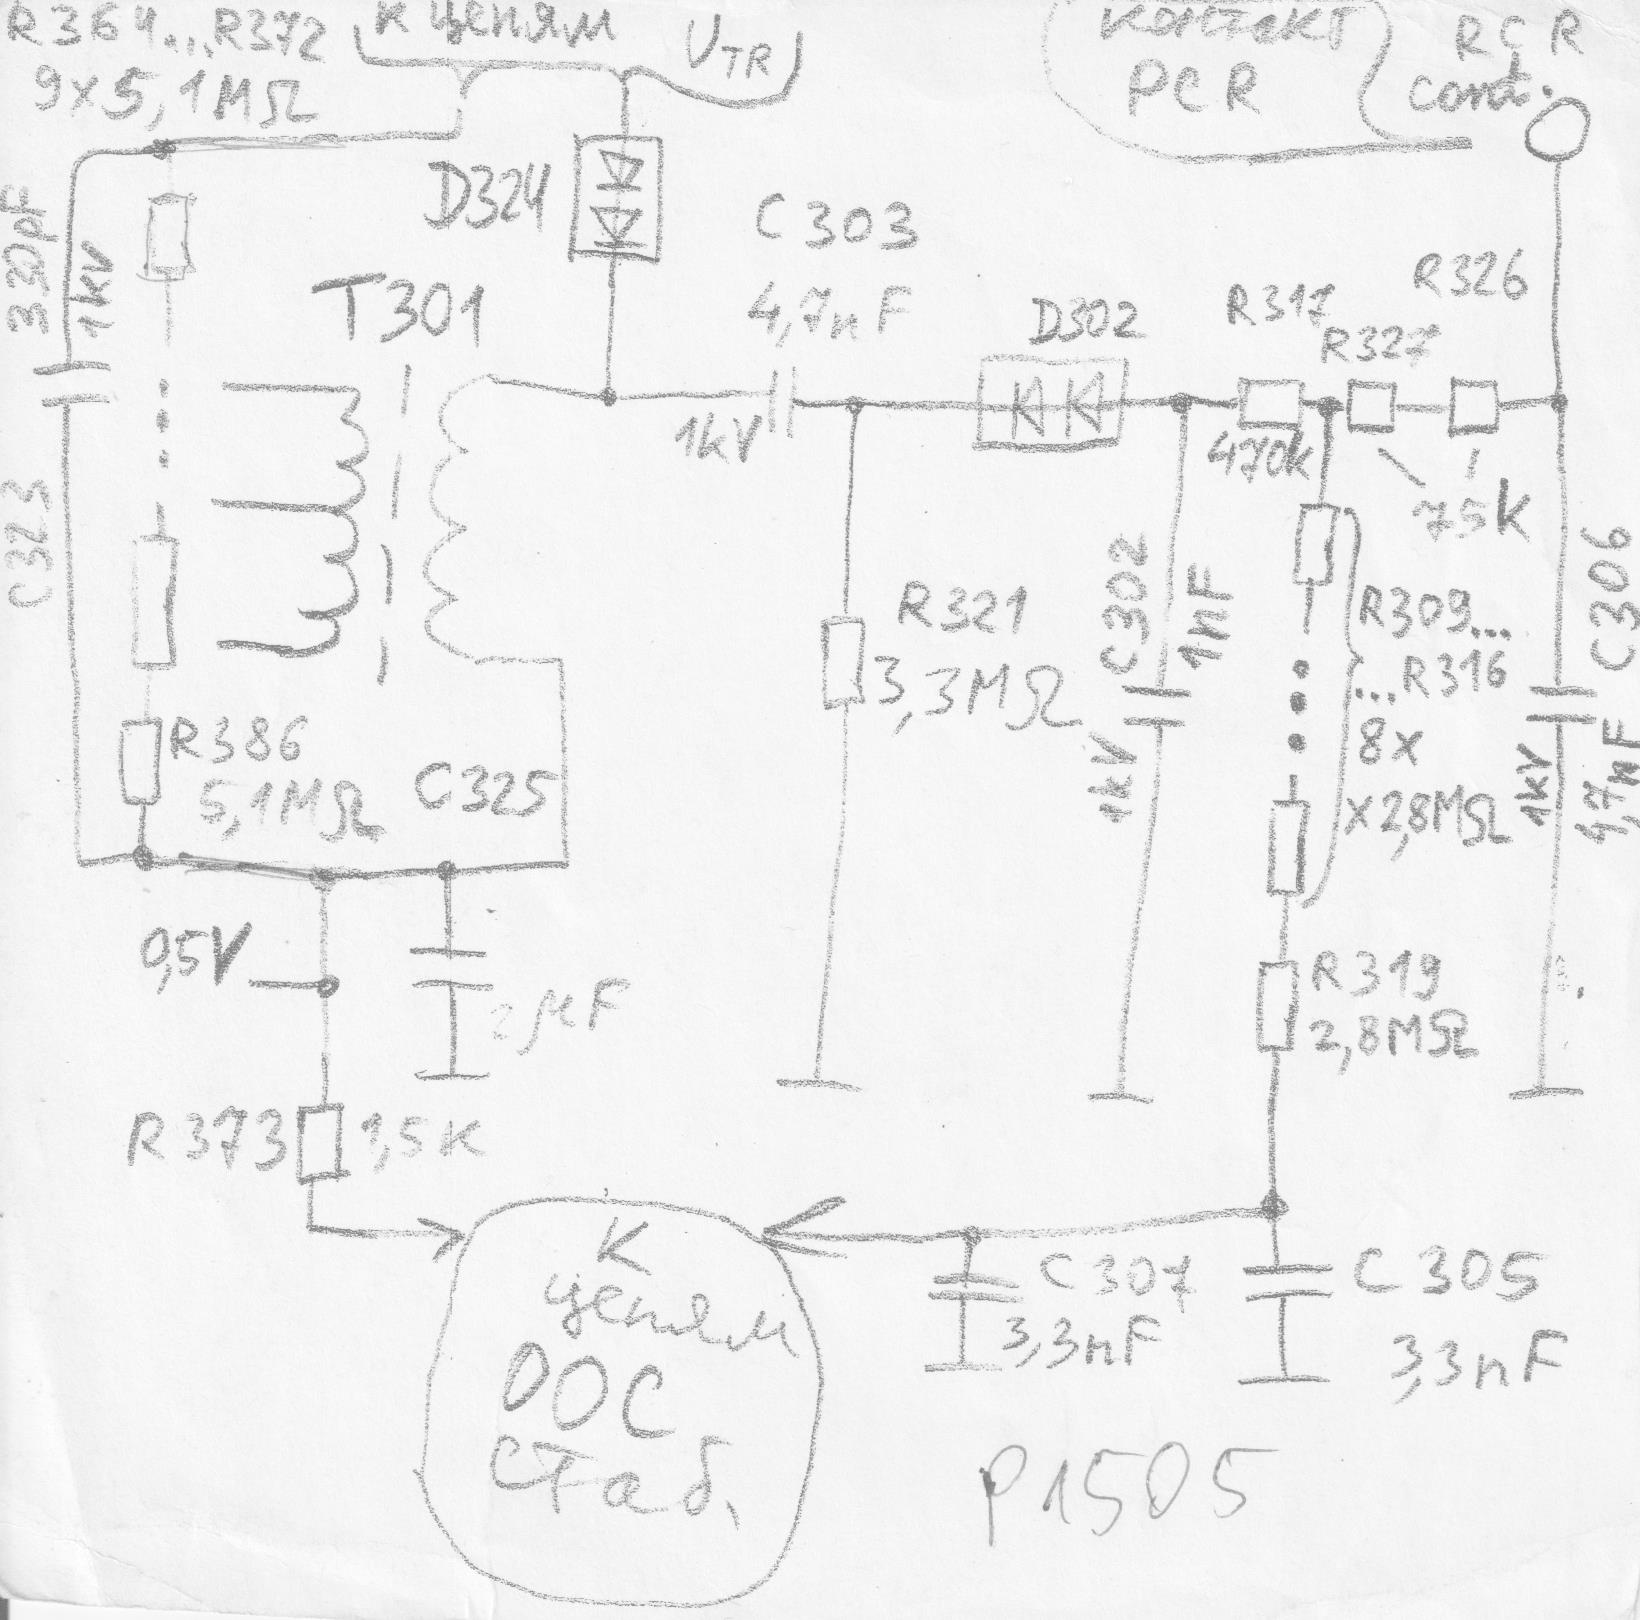 R364...R372
9x5,1MΩ
К цепям
UTR
контакт
PCR
RCR
cont.
330pF
1kV
C323
D324
T301
C303
4,7nF
1kV
D302
R317
470k
R327
R326
75K
R321
3,3MΩ
C302
1nF
1kV
R309...
...R316
8x
x2,8MΩ
C306
1kV
4,7nF
R386
5,1MΩ
C325
2μF
0,5V
R373
1,5K
R319
2,8MΩ
К
цепям
ООС
стаб.
C307
3,3nF
C305
3,3nF
P1505